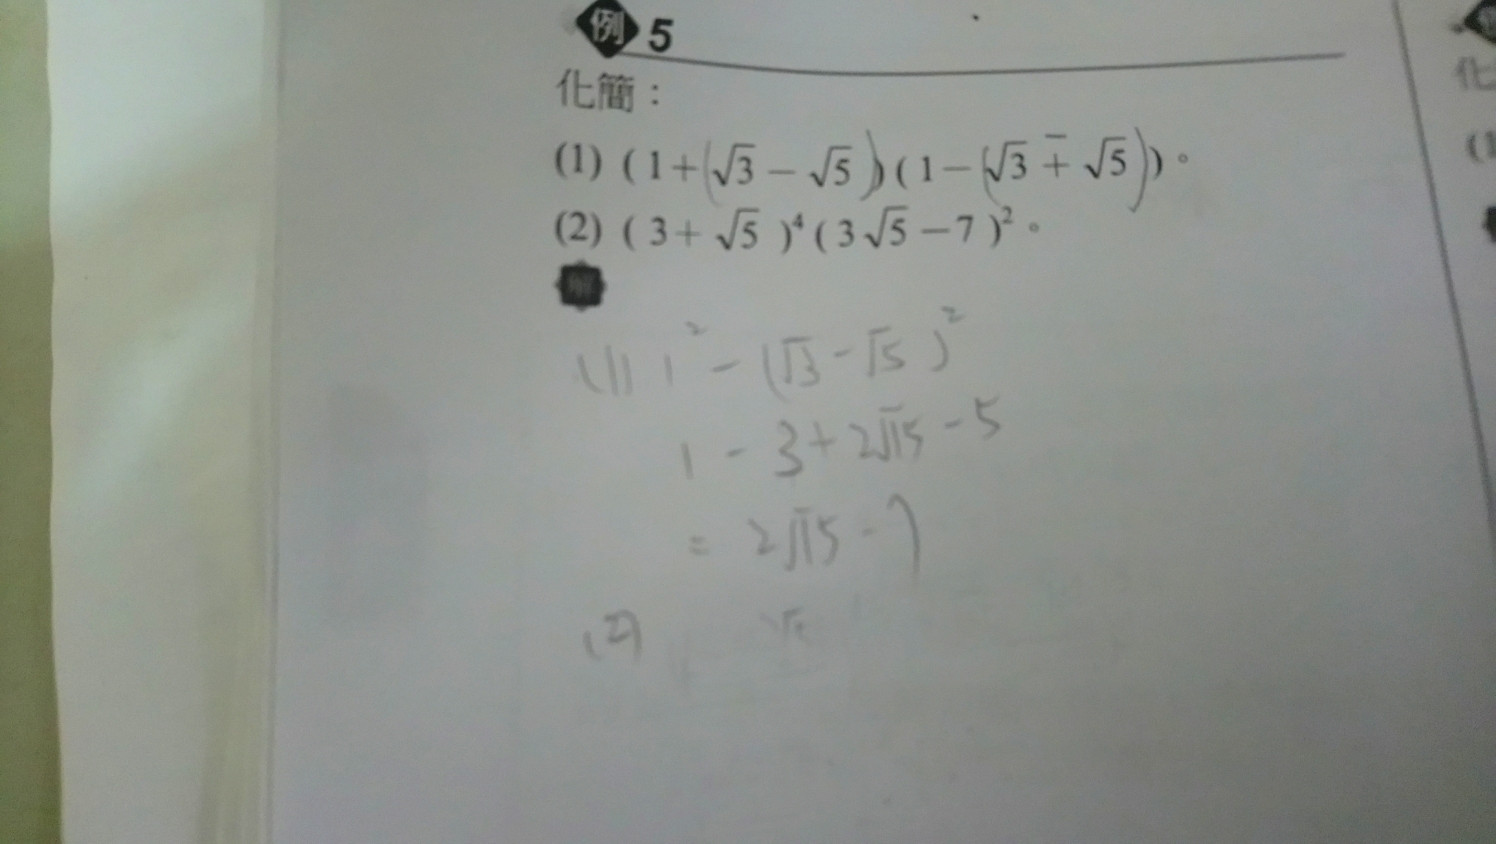 例 5
化簡：
(1) ( 1 + (√3 − √5 ) ) ( 1 − (√3 + √5 ) ) 。
(2) ( 3 + √5 )⁴ ( 3√5 − 7 )² 。
解
(1) 1² - (√3 - √5 )²
1 - 3 + 2√15 - 5
= 2√15 - 7
(2)
化
(1